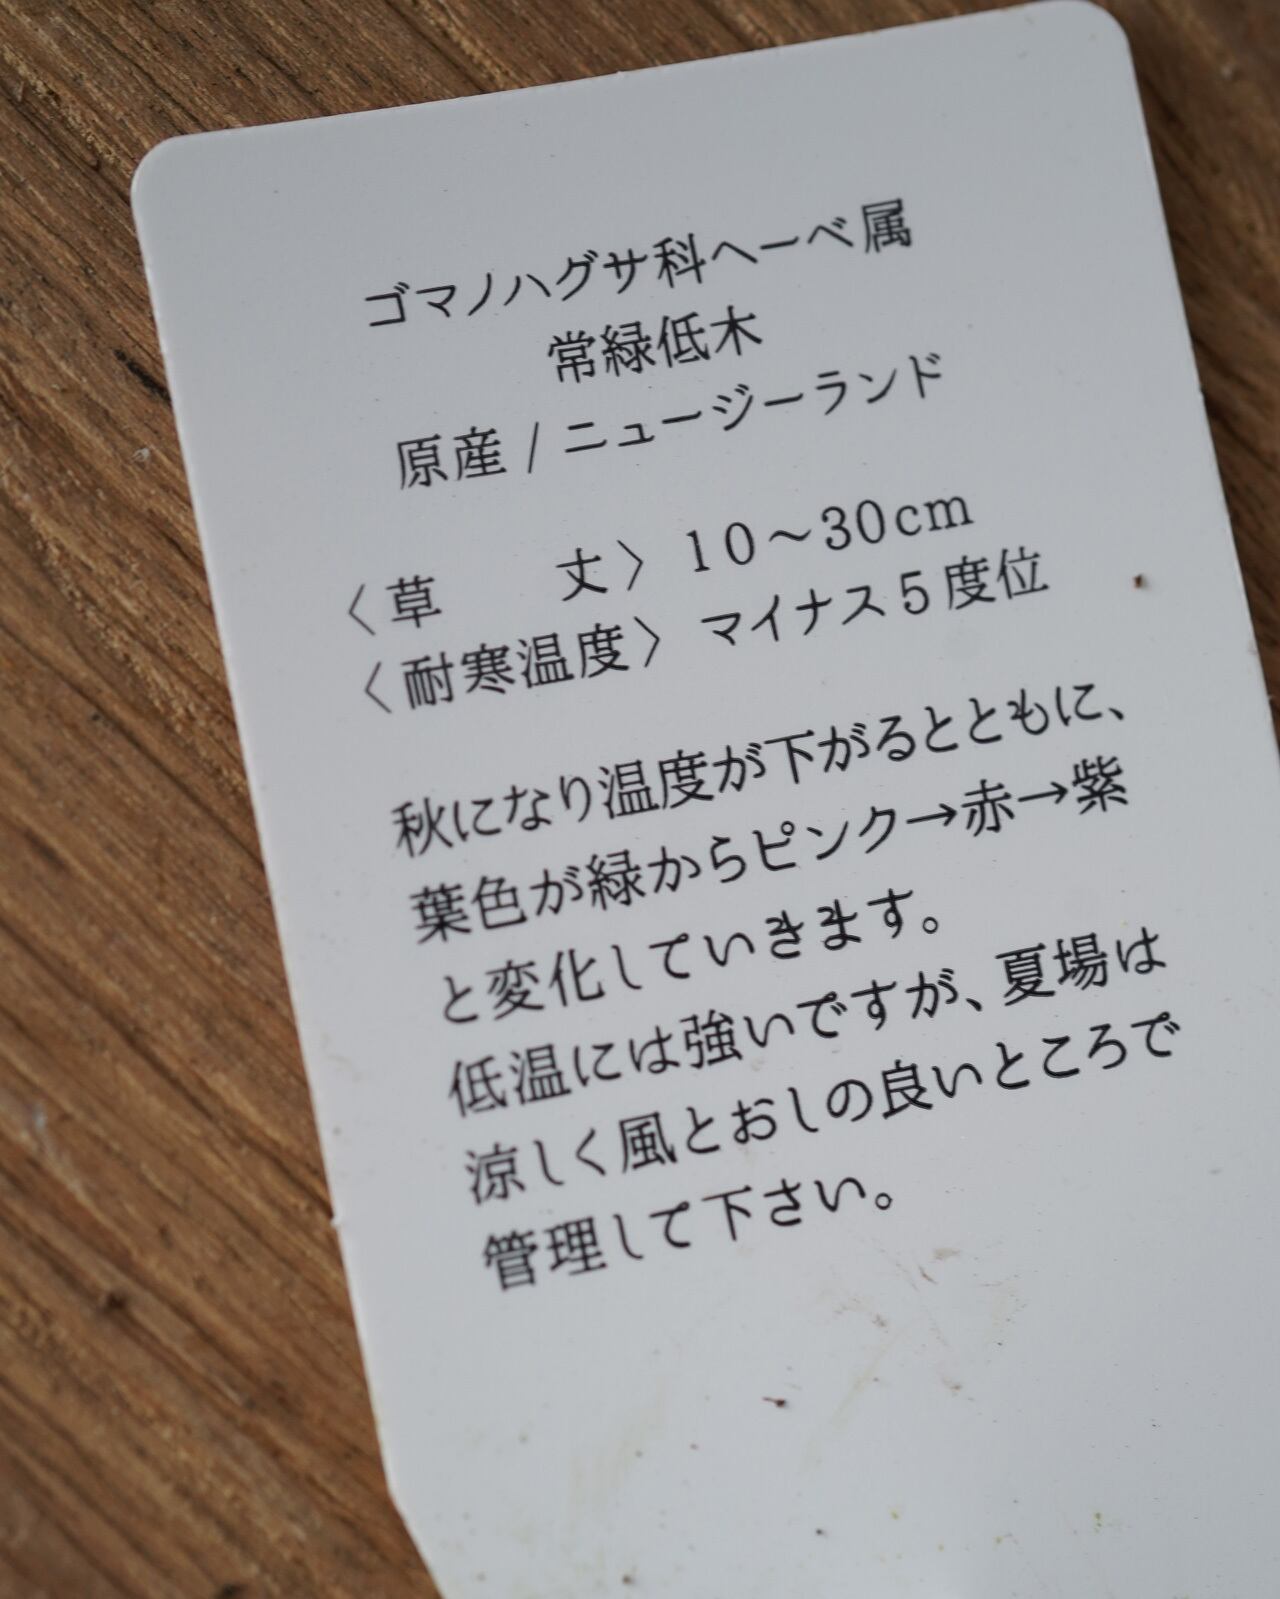 ゴマノハグサ科へーべ属
常緑低木
原産 / ニュージーランド
〈草　　丈〉10～30cm
〈耐寒温度〉マイナス5度位
秋になり温度が下がるとともに、
葉色が緑からピンク→赤→紫
と変化していきます。
低温には強いですが、夏場は
涼しく風とおしの良いところで
管理して下さい。